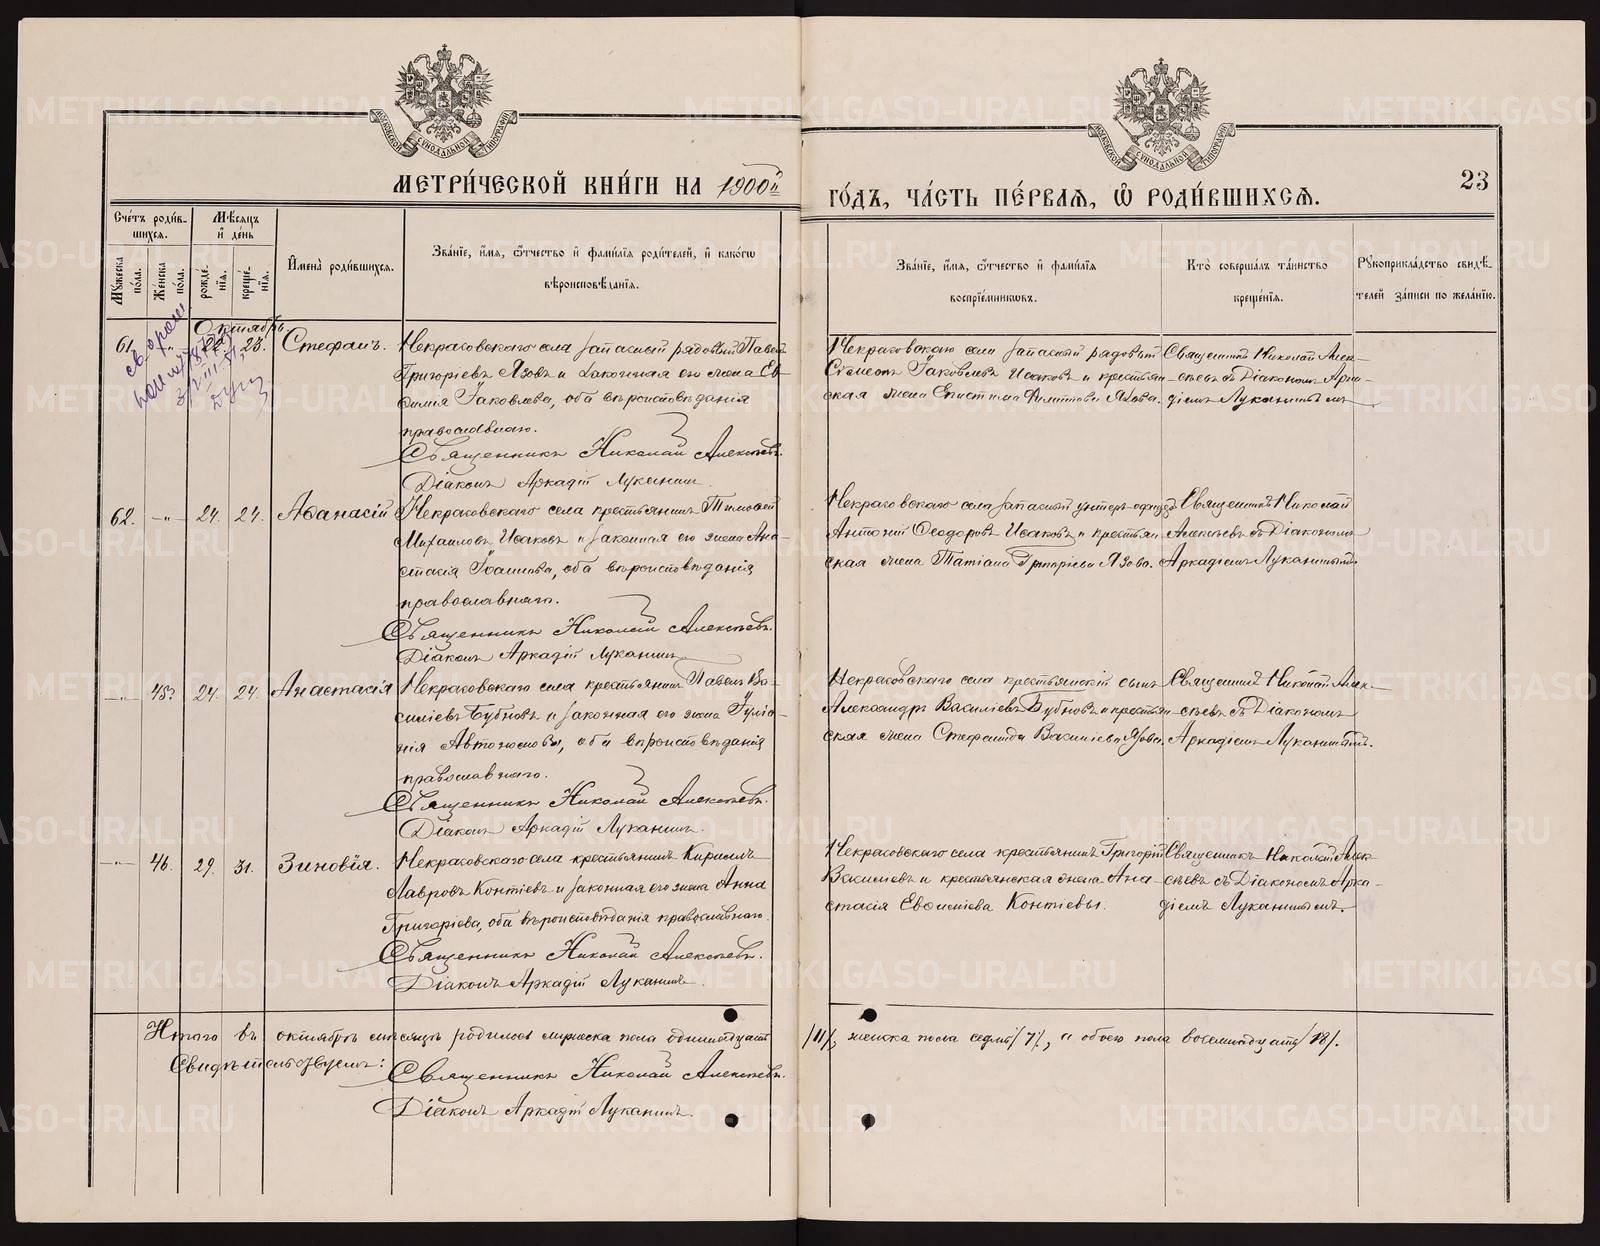 МЕТРИ́ЧЕСКОЙ КНИ́ГИ НА 1900й
ГО́ДЪ, ЧА́СТЬ ПЕ́РВАѦ, Ѿ РОДИ́ВШИХСѦ.
23
МОСКОВСКОЙ СѴНОДАЛЬНОЙ ТИПОГРАФІИ
МОСКОВСКОЙ СѴНОДАЛЬНОЙ ТИПОГРАФІИ
Счетъ роди́в-
шихсѧ.
Мужеска пола.
Женска пола.
Мѣсяцъ
и день
рожде-
нія.
креще-
нія.
Имена родившихся.
Званіе, имя, отчество и фамилія родителей, и какого
вѣроисповѣданія.
Званіе, имя, отчество и фамилія
воспріемниковъ.
Кто совершалъ таинство
крещенія.
Рукоприкладство свидѣ-
телей записи по желанію.
Октябрь.
61. -"- 22. 23. Стефанъ.
Некрасовскаго села запасный рядовый Павелъ
Григоріевъ Язовъ и законная его жена Ев-
ѳимія Іаковлева, оба вѣроисповѣданія
православнаго.
Священникъ Николай Алексѣевъ.
Діаконъ Аркадій Луканинъ.
Некрасовскаго села запасный рядовый
Симеонъ Іаковлевъ Исаковъ и крестьян-
ская жена Епистима Филиппова Язова.
Священникъ Николай Алек-
сѣевъ съ Діакономъ Арка-
діемъ Луканинымъ
62. -"- 24. 24. Аѳанасій
Некрасовскаго села крестьянинъ Тимоѳей
Михаиловъ Исаковъ и законная его жена Ана-
стасія Іоаннова, оба вѣроисповѣданія
православнаго.
Священникъ Николай Алексѣевъ.
Діаконъ Аркадій Луканинъ
Некрасовскаго села запасный унтеръ-офицеръ
Антоній Ѳеодоровъ Исаковъ и крестьян-
ская жена Татіана Григоріева Язова.
Священникъ Николай
Алексѣевъ съ Діакономъ
Аркадіемъ Луканинымъ
-"- 45. 24. 24. Анастасія
Некрасовскаго села крестьянинъ Павелъ Ва-
силіевъ Бубновъ и законная его жена Іуліа-
нія Автономова, оба вѣроисповѣданія
православнаго.
Священникъ Николай Алексѣевъ.
Діаконъ Аркадій Луканинъ.
Некрасовскаго села крестьянскій сынъ
Александръ Василіевъ Бубновъ и крестьян-
ская жена Стефанида Василіева Язова.
Священникъ Николай Алек-
сѣевъ съ Діакономъ
Аркадіемъ Луканинымъ.
-"- 46. 29. 31. Зиновія.
Некрасовскаго села крестьянинъ Кириллъ
Лавровъ Контіевъ и законная его жена Анна
Григоріева, оба вѣроисповѣданія православнаго.
Священникъ Николай Алексѣевъ.
Діаконъ Аркадій Луканинъ.
Некрасовскаго села крестьянинъ Григорій
Василіевъ и крестьянская жена Ана-
стасія Евѳиміева Контіевы.
Священникъ Николай Алек-
сѣевъ съ Діакономъ Арка-
діемъ Луканинымъ.
Итого въ октябрѣ мѣсяцѣ родилось мужеска пола одиннадцать /11/, женска пола седмь /7/, а обоего пола восемнадцать /18/.
Свидѣтельствуемъ:
Священникъ Николай Алексѣевъ.
Діаконъ Аркадій Луканинъ.
METRIKI.GASO-URAL.RU